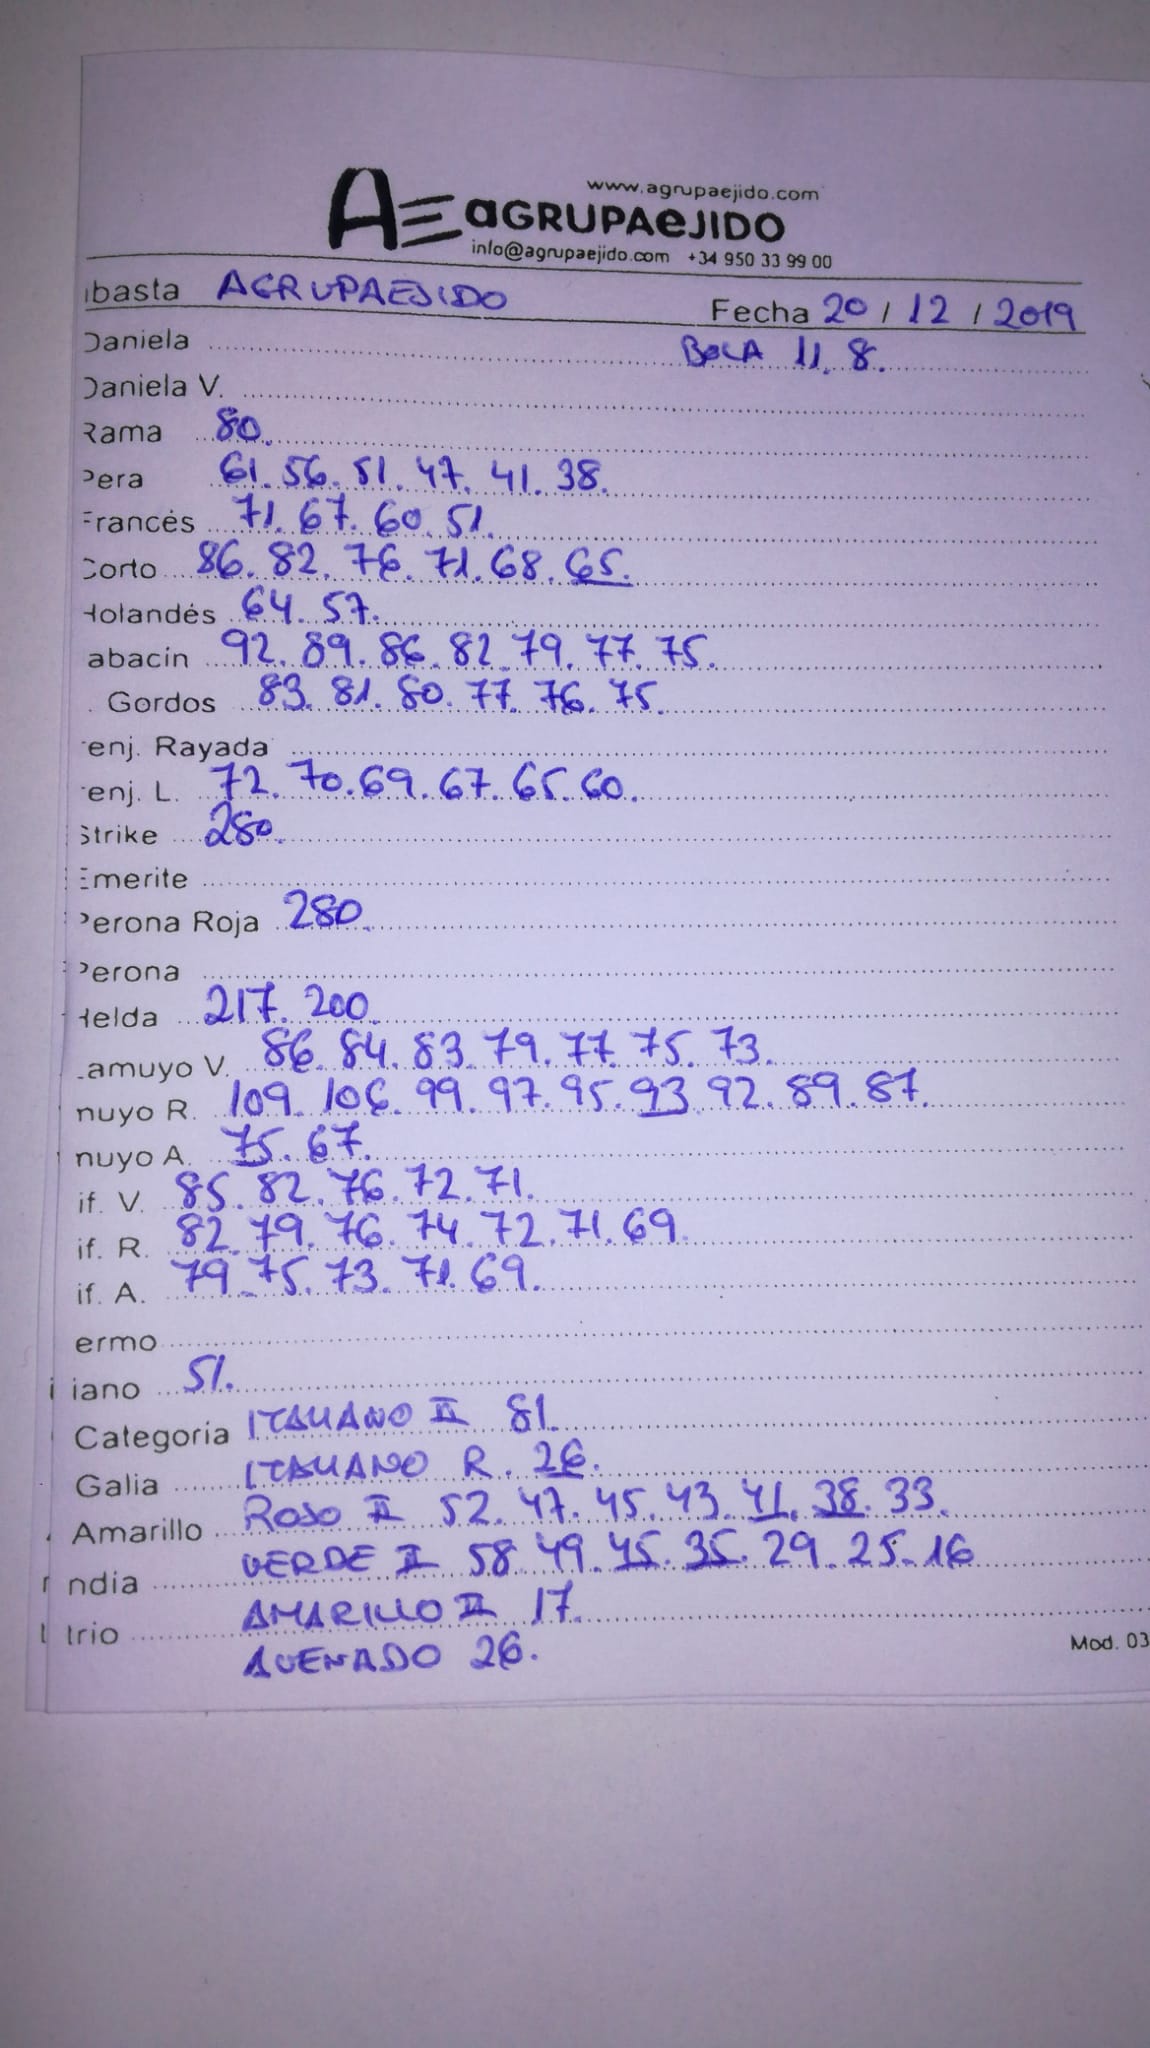 www.agrupaejido.com
AE aGRUPAeJIDO
info@agrupaejido.com +34 950 33 99 00
ubasta AGRUPAEJIDO Fecha 20 / 12 / 2019
Daniela BOLA 11. 8.
Daniela V.
Rama 80.
Pera 61. 56. 51. 47. 41. 38.
Francés 71. 67. 60. 51.
Corto 86. 82. 76. 71. 68. 65.
Holandés 64. 57.
abacín 92. 89. 86. 82. 79. 77. 75.
. Gordos 83. 81. 80. 77. 76. 75.
enj. Rayada
enj. L. 72. 70. 69. 67. 65. 60.
Strike 280.
Emerite
Perona Roja 280.
Perona
Helda 217. 200.
amuyo V. 86. 84. 83. 79. 77. 75. 73.
muyo R. 109. 106. 99. 97. 95. 93. 92. 89. 87.
muyo A. 75. 67.
if. V. 85. 82. 76. 72. 71.
if. R. 82. 79. 76. 74. 72. 71. 69.
if. A. 79. 75. 73. 71. 69.
ermo
iano 51.
Categoría ITALIANO II 81.
Galia ITALIANO R. 26.
Amarillo ROJO II 52. 47. 45. 43. 41. 38. 33.
ndia VERDE II 58. 49. 45. 35. 29. 25. 16
trio AMARILLO II 17.
ASENADO 26.
Mod. 03